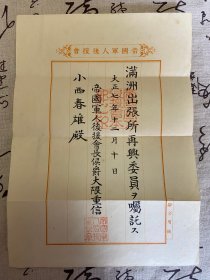 帝國軍人後援會
滿洲出張所再興委員ヲ囑託ス
大正七年十二月十日
帝國軍人後援會長侯爵大隈重信
小西春雄殿